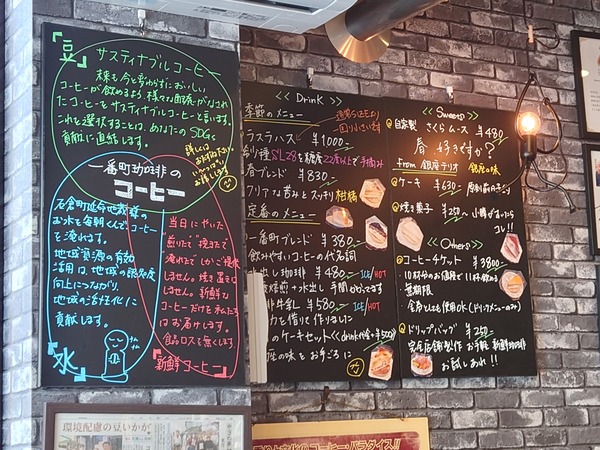 「豆」
サスティナブルコーヒー
来も今と変わらずにおいしい
コーヒーが飲めるよう様々な配慮がなされ
たコーヒーをサスティナブルコーヒーと言います。
これを選択することは、あなたのSDGs
貢献に直結します。
詳しくは
お話します
一番町珈琲の
コーヒー
石倉町延命地蔵尊の
お水を毎朝くんでコーヒー
を淹れます。
地域資源の有効
活用は、地域の認知度
向上につながり、
地域の活性化に
貢献します。
「水」
当日にやいた
煎りたて 挽きたて
淹れたてしかご提供
しません。焼き置きは
しません。新鮮な
コーヒーだけを私たち
はお届けします。
食品ロスを無くします
「新鮮コーヒー」
≪ Drink ≫
季節のメニュー
通常サイズより
一回り小さいです
ラスラハス ¥1000-
SL28を糖度22度以上で手摘み
春ブレンド ¥830-
フリアな苦みとスッキリ柑橘
定番のメニュー
一番町ブレンド ¥380-
飲みやすいコーヒーの代名詞
水出し珈琲 ¥480- ICE/HOT
焙煎+水出し 手間ひまかってます
珈琲牛乳 ¥580- ICE/HOT
力を借りて作りました
のケーキセット≪drink代金+¥500≫
性の味をお手ごろに
≪ Sweets ≫
自家製 さくらムース ¥480-
春 好きですか?
from 銀座テリオ 銀座の味
ケーキ ¥630-
焼き菓子 ¥250-
コレ!!
≪ Others ≫
コーヒーチケット ¥3800-
10杯分のお値段で11杯飲める
無期限
食券としても使用OK(ドリンクメニューのみ)
ドリップバッグ ¥250-
お試しあれ!!
環境配慮の豆いかが
コーヒー・パラダイス!!